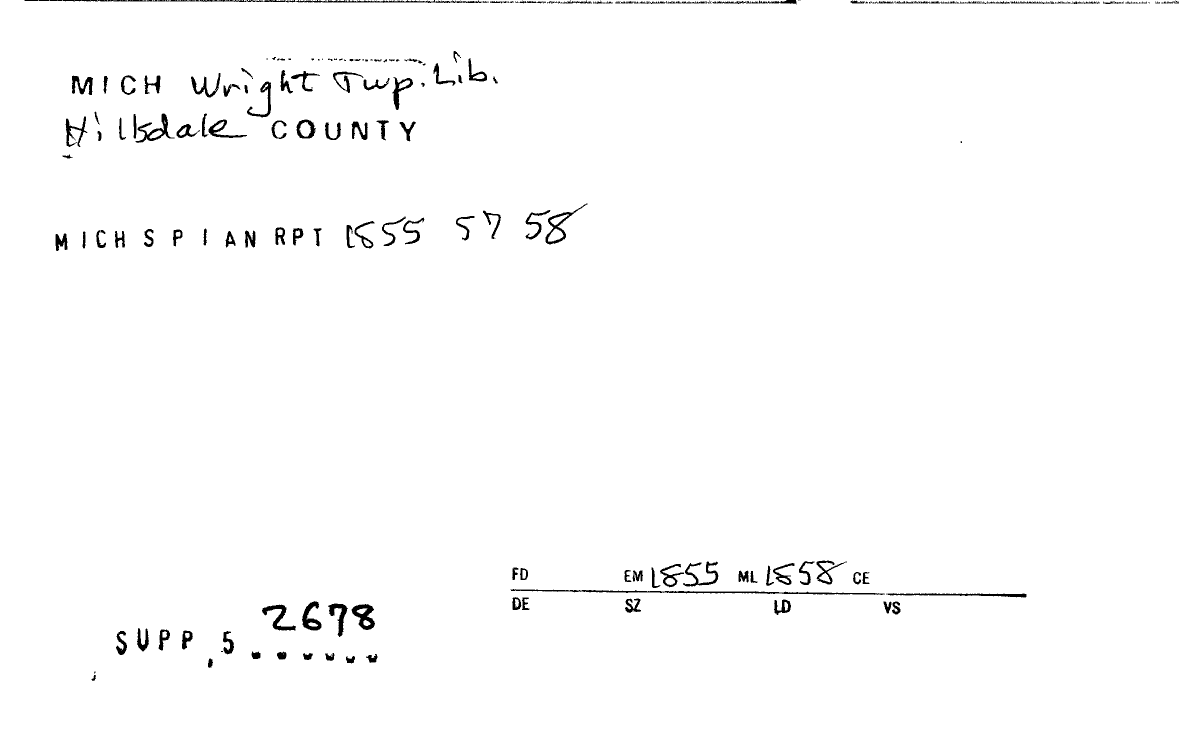 MICH Wright Twp. Lib.
Hillsdale COUNTY
MICH S P I AN RPT 1855 57 58
FD EM 1855 ML 1858 CE
DE SZ LD VS
2678
SUPP, 5 . . . . . .